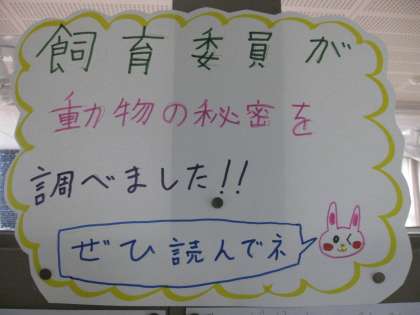 飼育委員が
動物の秘密を
調べました!!
ぜひ読んでネ